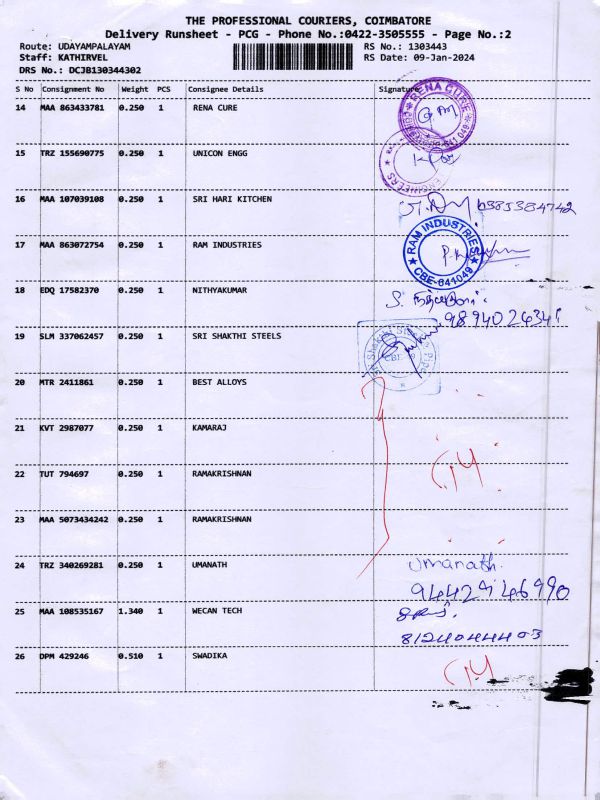 THE PROFESSIONAL COURIERS, COIMBATORE
Delivery Runsheet - PCG - Phone No.:0422-3505555 - Page No.:2
Route: UDAYAMPALAYAM RS No.: 1303443
Staff: KATHIRVEL RS Date: 09-Jan-2024
DRS No.: DCJB130344302
S No Consignment No Weight PCS Consignee Details Signature
14 MAA 863433781 0.250 1 RENA CURE
RENA CURE
15 TRZ 155690775 0.250 1 UNICON ENGG
ENGINEERS
16 MAA 107039108 0.250 1 SRI HARI KITCHEN
17 MAA 863072754 0.250 1 RAM INDUSTRIES
RAM INDUSTRIES
CBE-641049
18 EDQ 17582370 0.250 1 NITHYAKUMAR
19 SLM 337062457 0.250 1 SRI SHAKTHI STEELS
20 MTR 2411861 0.250 1 BEST ALLOYS
21 KVT 2987077 0.250 1 KAMARAJ
22 TUT 794697 0.250 1 RAMAKRISHNAN
23 MAA 5073434242 0.250 1 RAMAKRISHNAN
24 TRZ 340269281 0.250 1 UMANATH Umanath.
25 MAA 108535167 1.340 1 WECAN TECH
8124044403
26 DPM 429246 0.510 1 SWADIKA